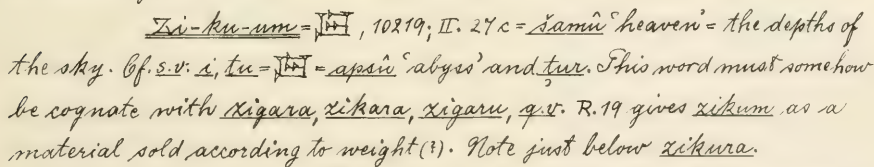 Zi-ku-um = 𒇉, 10219; II. 27 c = šamû 'heaven' = the depths of
the sky. Cf. s.v. i, tu = = apsû 'abyss' and tur. This word must somehow
be cognate with zigara, zikara, zigaru, q.v. R. 19 gives zikum as a
material sold according to weight (?). Note just below zikura.